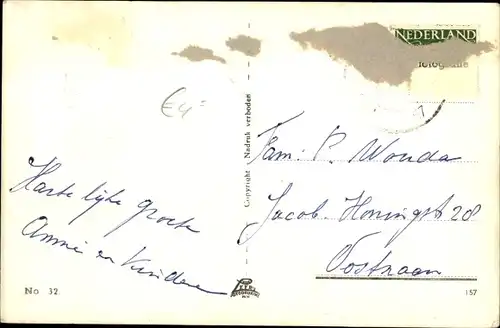 NEDERLAND
fotografie
€4=
Fam. P. Wonda
Jacob Honingstr 28
Oostzaan
Hartelijke groete
Annie en Kinderen
Copyright - Nadruk verboden
No 32.
157